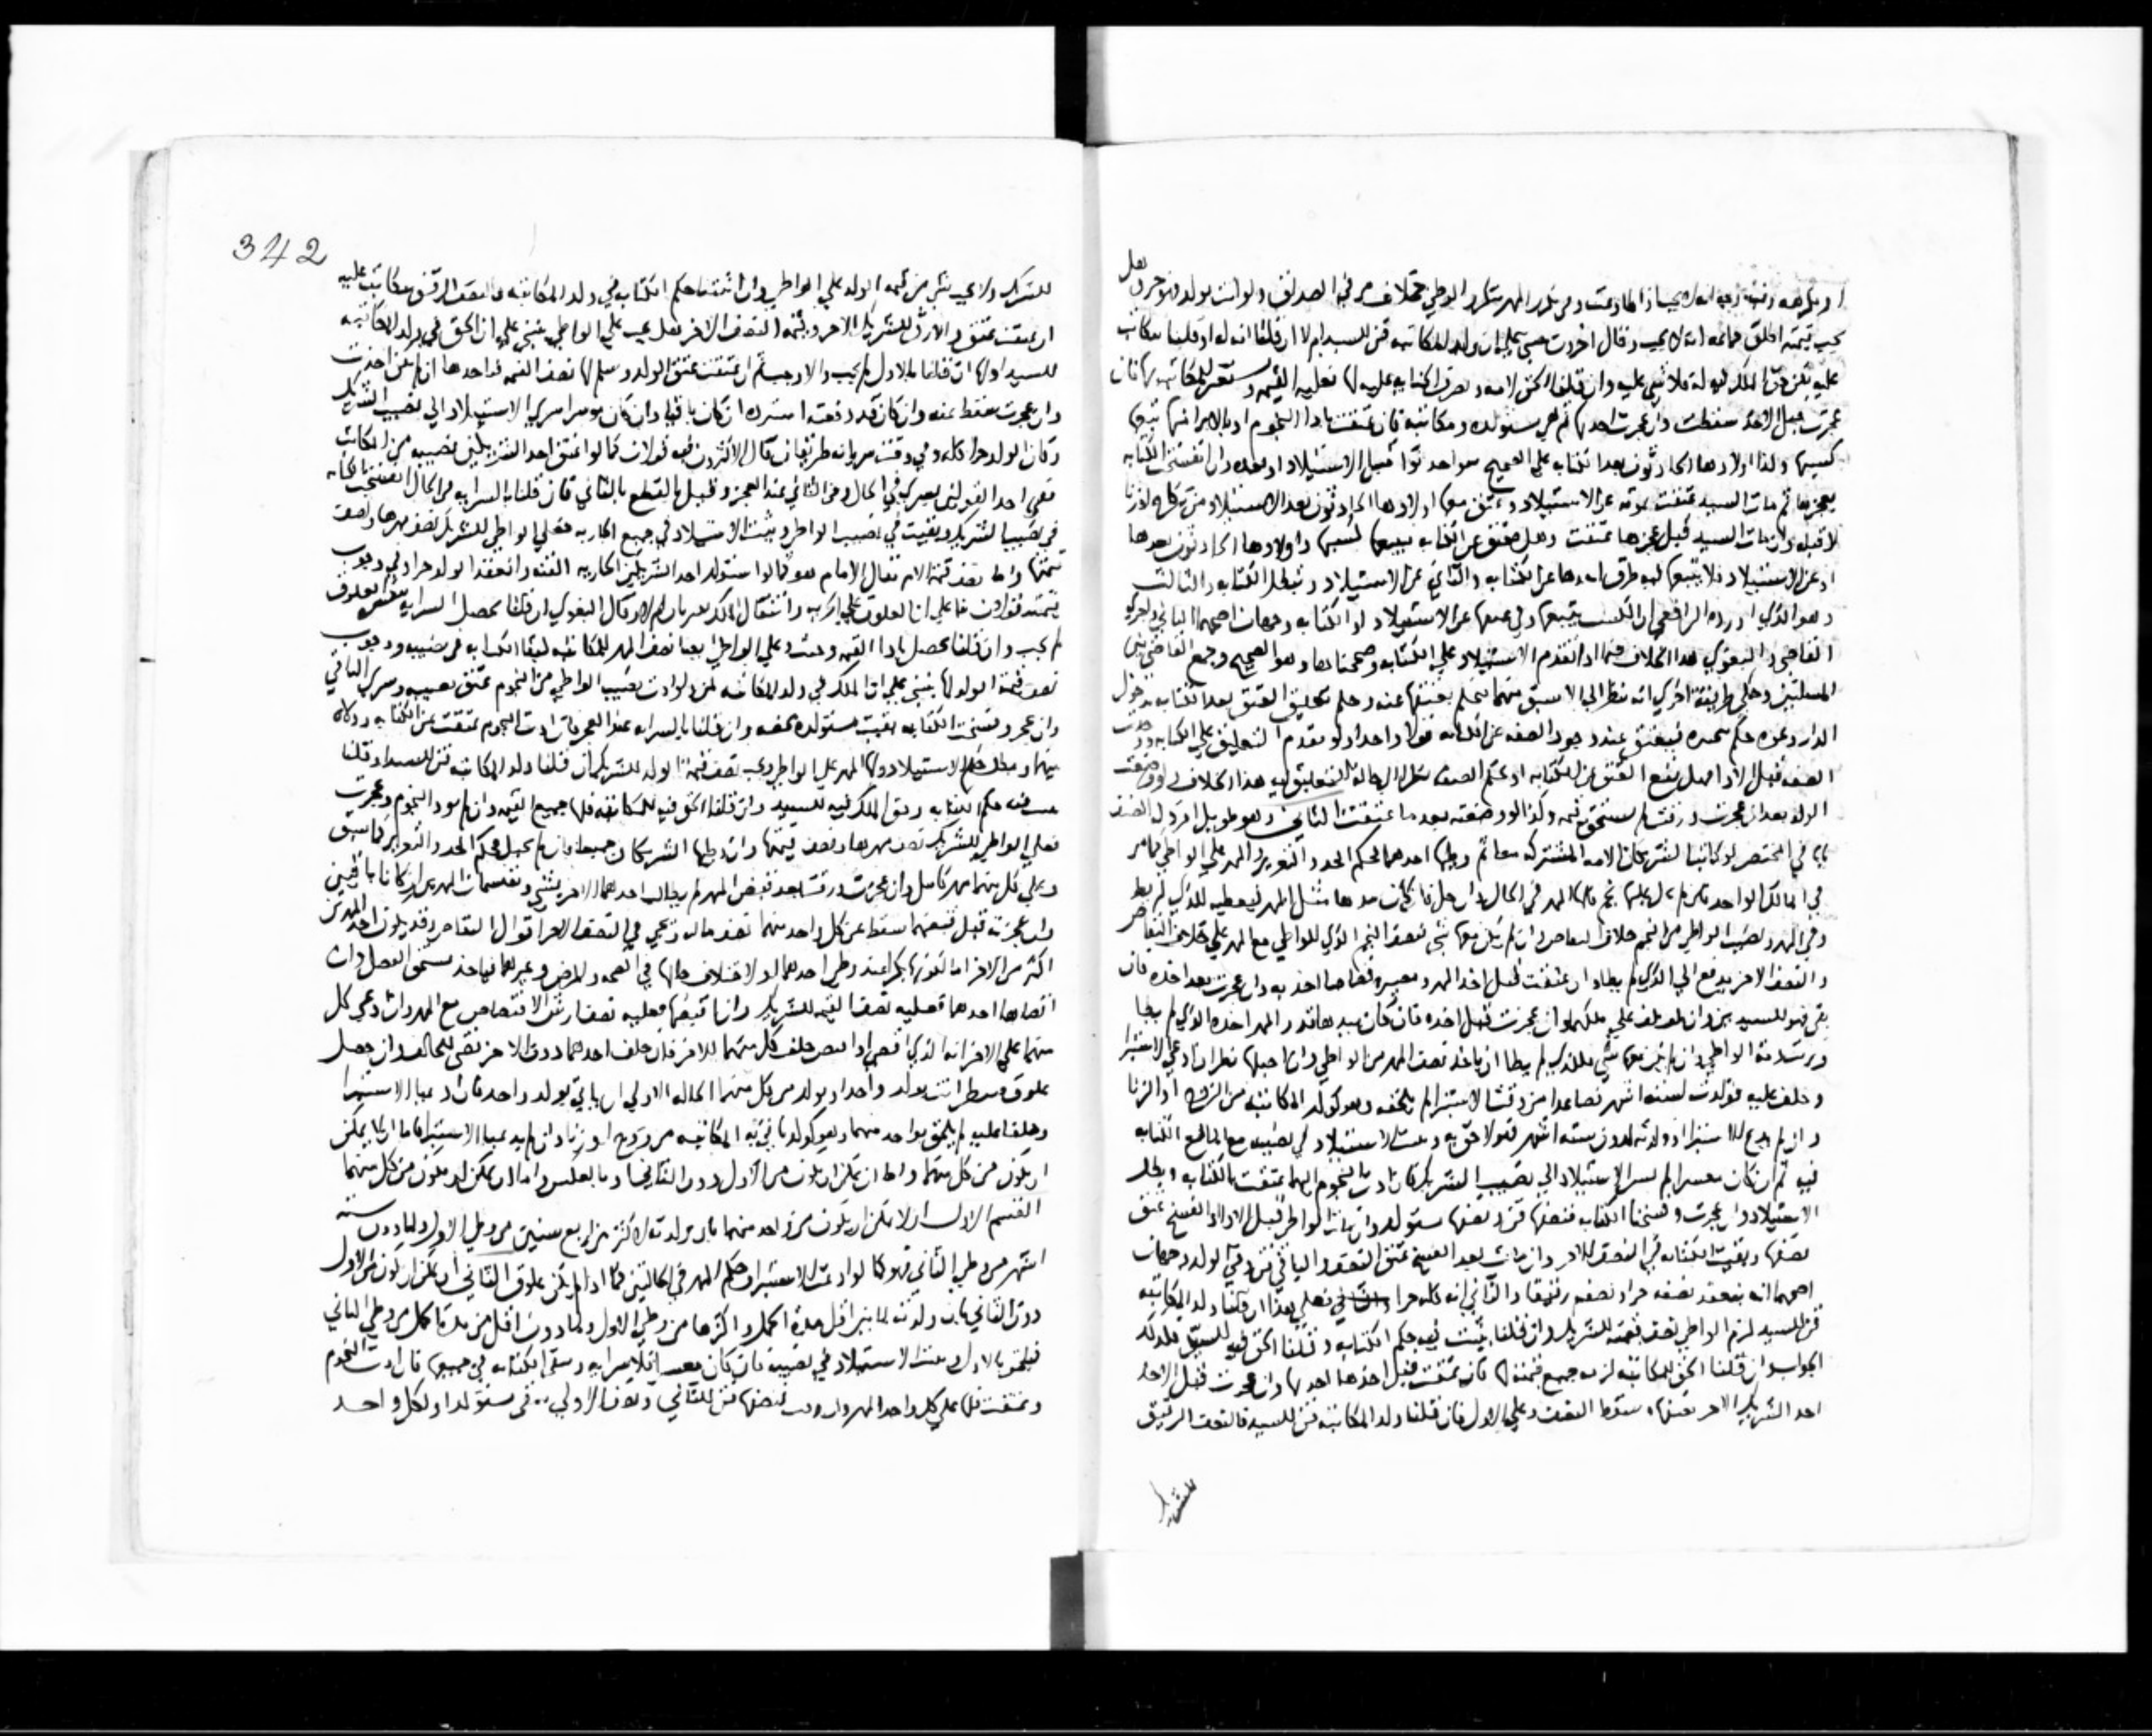 او يكرهه وفيه وجه انه لا يجب اذا طاوعت ولا يتكرر المهر بتكرر الوطي خلاف مر في الصداق ولو اتت بولد فهو حر وهل
تجب قيمته اطلق جماعه انه لا يجب وقال اخرون مبني على ان ولد المكاتبه قن للسيد ام لا ان قلنا انه له او قلنا يتكاتب
عليه لكن حق الملك فيه له فلا شي عليه وان قلنا الحق لامه ويصرف اكتسابه عليه لها فعليه القيمه وتستعين المكاتبه بها فان
عجزت قبل الاخذ سقطت وان عجزت اخذتها ثم هي مستولده ومكاتبه فان عتقت باداء النجوم او بالابراء منها تبعها
كسبها وكذا اولادها الحادثون بعد الكتابه على الصحيح سواء حدثوا قبل الاستيلاد او بعده وان انفسخت الكتابه
بعجزها ثم مات السيد عتقت بموته عن الاستيلاد وعتق معها اولادها الحادثون بعد الاستيلاد من نكاح او زنا
لا قبله وان مات السيد قبل عجزها عتقت وهل تعتق عن الكتابه فيتبعها كسبها واولادها الحادثون بعدها
او عن الاستيلاد فلا يتبعها فيه طرق احدها عن الكتابه والثاني عن الاستيلاد وتبطل الكتابه والثالث
وهو الذي اورده الرافعي ان الكسب يتبعها وفي عتقها عن الاستيلاد او الكتابه وجهان اصحهما الثاني واجرى
القاضي والبغوي هذا الخلاف فيما اذا تقدم الاستيلاد على الكتابه وصححناها وهو الصحيح وجمع القاضي بين
المسلتين وحكى طريقة اخرى انه ينظر الى الاسبق منهما فيحكم بعتقها عنه وحكم تعليق العتق بعد الكتابه بدخول
الدار وغيره حكم تنجيزه فيعتق عند وجود الصفه عن الكتابه قولا واحدا ولو تقدم التعليق على الكتابه ووجدت
الصفه قبل الاداء هل يقع العتق عن الكتابه او عن الصفه نظرا الى حالة التعليق فيه هذا الخلاف ولو وضعت
الولد بعد ان عجزت ورقت لم تستحق قيمه وكذا لو وضعته بعد ما عتقت الثانيه وهو طويل افرد له الشافعي
بابا في المختصر لو كاتب الشريكان الامه المشتركه معا ثم وطيها احدهما فحكم الحد والتعزير والمهر على الواطي كما مر
في المالك الواحد فان لم يحل عليها نجم فلها المهر في الحال وان حل فان كان معها مثل المهر فيعطيه للذي لم يطا
وفي المهر ونصيب الواطي من النجم خلاف التقاص وان لم يكن معها شي فنصف النجم الذي للواطي مع المهر على خلاف التقاص
والنصف الاخر يدفع الى الذي لم يطا وان عتقت قبل اخذ المهر ومصيره قصاصا اخذته وان عجزت بعد اخذه فان
بقي فهو للسيدين وان تلف تلف على ملكهما وان عجزت قبل اخذه فان كان بيدها قدر المهر اخذه الذي لم يطا
وبريت ذمة الواطي وان لم يكن معها شي فللذي لم يطا ان ياخذ نصف المهر من الواطي وان احبلها نظر ان ادعى الاستبراء
وحلف عليه فولدت لستة اشهر فصاعدا من وقت الاستبراء لم يلحقه وهو كولد المكاتبه من الزوج او الزنا
وان لم يدع الاستبراء او ولدته لدون سته اشهر فالولد لاحق به ويثبت الاستيلاد في نصيبه مع بقاء الكتابه
فيه ثم ان كان معسرا لم يسر الاستيلاد الى نصيب الشريك فان ادت النجوم اليهما عتقت بالكتابه وبطل
الاستيلاد وان عجزت وفسخنا الكتابه فنصفها قن ونصفها مستولد وان مات الواطي قبل الاداء او الفسخ عتق
نصفها وبقيت الكتابه في النصف الاخر وان مات بعد الفسخ عتق النصف والباقي قن وفي الولد وجهان
اصحهما انه ينعقد نصفه حرا ونصفه رقيقا والثاني انه كله حرا فعلى هذا ان قلنا ولد المكاتبه
قن للسيد لزم الواطي نصف قيمته للشريك وان قلنا يثبت فيه حكم الكتابه وقلنا الحق فيه للسيد فكذلك
الجواب وان قلنا الحق للمكاتبه لزمه جميع قيمته لها فان عتقت قبل اخذها اخذتها وان عجزت قبل الاخذ
اخذ الشريك الاخر نصفها وسقط النصف وعلى الاول فان قلنا ولد المكاتبه قن للسيد فالنصف الرقيق
للشريك
342
للشريك ولا يجب شي من قيمه الولد على الواطي وان اثبتنا حكم الكتابه في ولد المكاتبه فالنصف الرقيق يتكاتب عليه
ان عتقت عتق والا رق للشريك الاخر وقيمه النصف الاخر هل يجب على الواطي ينبني على ان الحق في ولد المكاتبه
للسيد او لها ان قلنا بالاول لم يجب والا وجب ثم ان عتقت عتق الولد وسلم لها نصف القيمه فان احدها ان لم تكن اخذت
وان عجزت سقط عنه وان كان قد دفعه استرده ان كان باقيا وان كان موسرا سرى الاستيلاد الى نصيب الشريك
وكان الولد حرا كله وفي وقت سريانه طريقان قال الاكثرون فيه قولان كما لو اعتق احد الشريكين نصيبه من المكاتب
ففي احد القولين يسري في الحال وفي الثاني عند العجز وقيل بالقطع بالثاني فان قلنا بالسرايه في الحال انفسخت الكتابه
في نصيب الشريك وبقيت في نصيب الواطي ويثبت الاستيلاد في جميع الجاريه فعلى الواطي للشريك نصف مهرها ونصف
قيمتها واما نصف قيمة الولد فقال الامام هو كما لو استولد احد الشريكين الجاريه القنه وانعقد الولد حرا وفي وجوب
قيمته قولان بناء على ان العلوق على ترتيب وانتقال الملك يعتبران ام لا وقال البغوي ان قلنا تحصل السرايه بنفس العلوق
لم يجب وان قلنا تحصل باداء القيمه وجبت وعلى الواطي ايضا نصف المهر للمكاتبه لبقاء الكتابه في نصيبه ووجوب
نصف قيمة الولد لها ينبني على ان الملك في ولد المكاتبه لمن ولو ادت نصيب الواطي من النجوم عتق نصيبه وسرى الى الباقي
وان عجز وفسخت الكتابه بقيت مستولده محضه وان قلنا بالسرايه عند العجز فان ادت النجوم عتقت عن الكتابه وولاؤها
بينهما وبطل حكم الاستيلاد ولها المهر على الواطي ويجب نصف قيمة الولد للشريك ان قلنا ولد المكاتبه قن للسيد او قلنا
يثبت فيه حكم الكتابه وحق الملك فيه للسيد وان قلنا الحق فيه للمكاتبه فلها جميع القيمه وان لم تود النجوم وعجزت
فعلى الواطي للشريك نصف مهرها ونصف قيمتها وان وطيها الشريكان جميعا فان لم تحبل فحكم الحد والتعزير كما سبق
وعلى كل منهما مهر كامل وان عجزت ورقت بعد قبض المهر لم يطالب احدهما الاخر بشي ويقتسمان المهرين ان كانا باقيين
وان عجزت قبل قبضهما سقط عن كل واحد منهما نصف ماله وتجي في النصف الاخر اقوال التقاص وقد يكون احد المهرين
اكثر من الاخر اما لكونها بكرا عند وطي احدهما او لاختلاف حالها في الصحه والمرض وغيرهما فياخذ مستحق الفضل وان
افتضاها احدهما فعليه نصف القيمه للشريك وان اقتضها فعليه نصف ارش الافتضاض مع المهر وان ادعى كل
منهما على الاخر انه الذي افضى او افتض حلف كل منهما للاخر فان حلف احدهما دون الاخر قضي للحالف وان حصل
علوق فينظر اتت بولد واحد او بولد من كل منهما الحاله الاولى ان تاتي بولد واحد فان ادعيا الاستبراء
وحلفا عليه لم يلحق بواحد منهما وهو كولد تاتي به المكاتبه من زوج او زنا وان لم يدعيا الاستبراء فاما ان لا يمكن
ان يكون من كل منهما واما ان يمكن ان يكون من الاول دون الثاني او بالعكس واما ان يمكن ان يكون من كل منهما
القسم الاول ان لا يمكن ان يكون من واحد منهما بان ولدته لاكثر من اربع سنين من وطي الاول ولما دون سته
اشهر من وطي الثاني فهو كما لو ادعيا الاستبراء وحكم المهر في الحالتين كما اذا لم يكن علوق الثاني ان يمكن ان يكون من الاول
دون الثاني بان ولدته لما بين اقل مدة الحمل واكثرها من وطي الاول ولما دون اقل من مدة الحمل من وطي الثاني
فيلحق بالاول ويثبت الاستيلاد في نصيبه فان كان معسرا فلا سرايه وتبقى الكتابه في جميعها فان ادت النجوم
وعتقت فلها على كل واحد المهر وان رقت فنصفها قن للثاني ونصفها الاولي في مستولد او لكل واحد